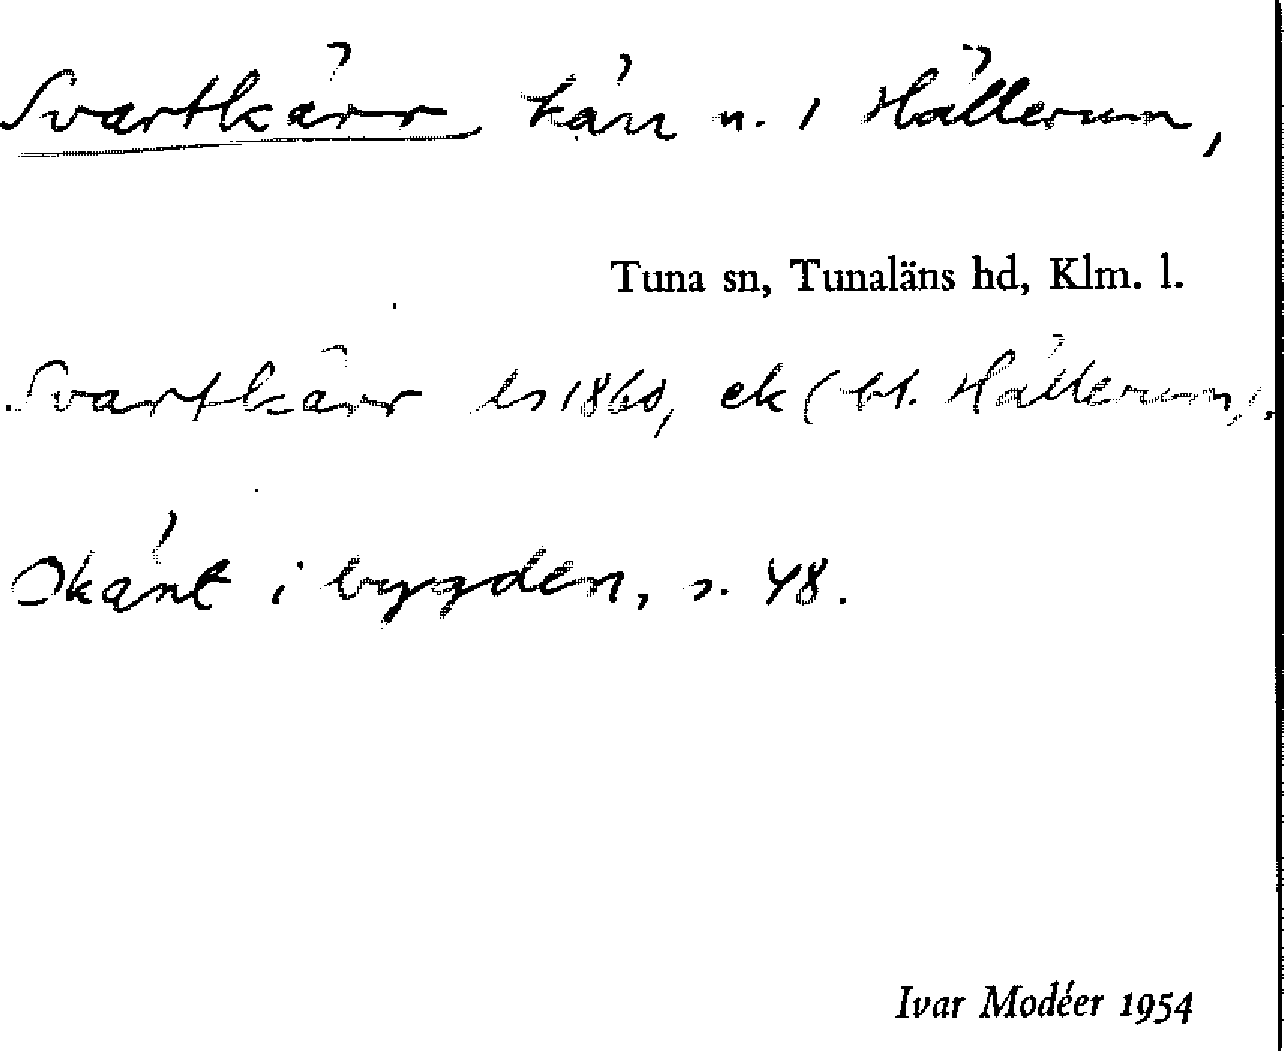 Svartkärr kärr n. i Hällerum,
Tuna sn, Tunaläns hd, Klm. l.
Svartkärr ls 1860, ek (bl. Hällerum).
Okänt i bygden, s. 48.
Ivar Modéer 1954